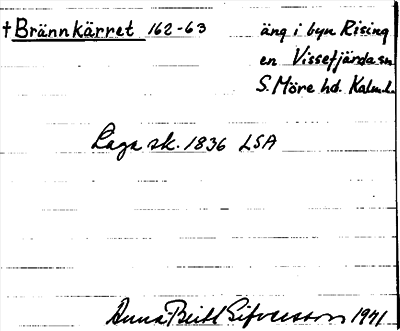 †Brännkärret 162-63 äng i byn Rising
en Vissefjärda sn
S. Möre hd. Kalm.l.
Laga sk. 1836 LSA
Anna-Britt 1941